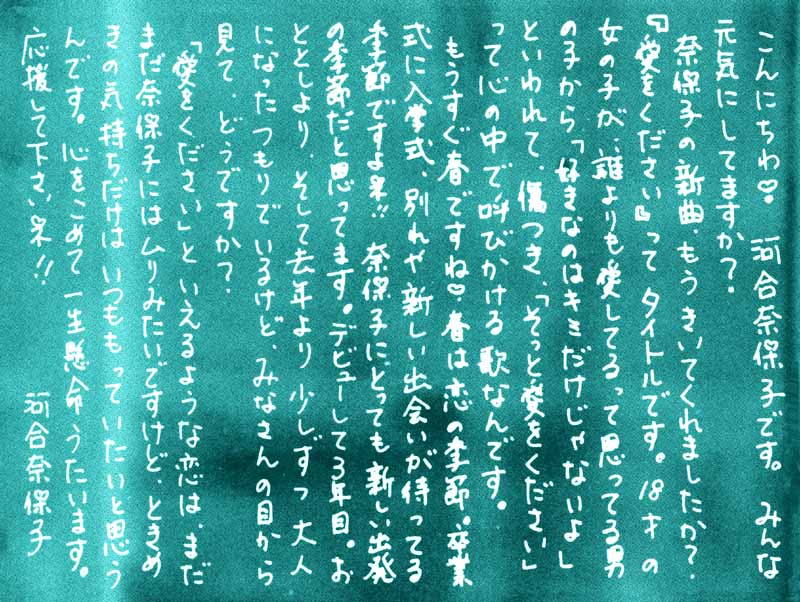 こんにちわ♡ 河合奈保子です。 みんな
元気にしてますか?
奈保子の新曲、もうきいてくれましたか?
『愛をください』って タイトルです。18才の
女の子が、誰よりも愛してるって思ってる男
の子から「好きなのはキミだけじゃないよ」
といわれて、傷つき、「そっと愛をください」
って心の中で呼びかける歌なんです。
もうすぐ春ですね♡春は恋の季節。卒業
式に入学式、別れや新しい出会いが待ってる
季節ですよネ!! 奈保子にとっても新しい出発
の季節だと思ってます。デビューして3年目。お
ととしより、そして去年より 少しずつ 大人
になったつもりでいるけど、みなさんの目から
見て、どうですか?
「愛をください」といえるような恋は、まだ
まだ奈保子にはムリみたいですけど、ときめ
きの気持ちだけは いつももっていたいと思う
んです。心をこめて一生懸命うたいます。
応援して下さいネ!! 河合奈保子